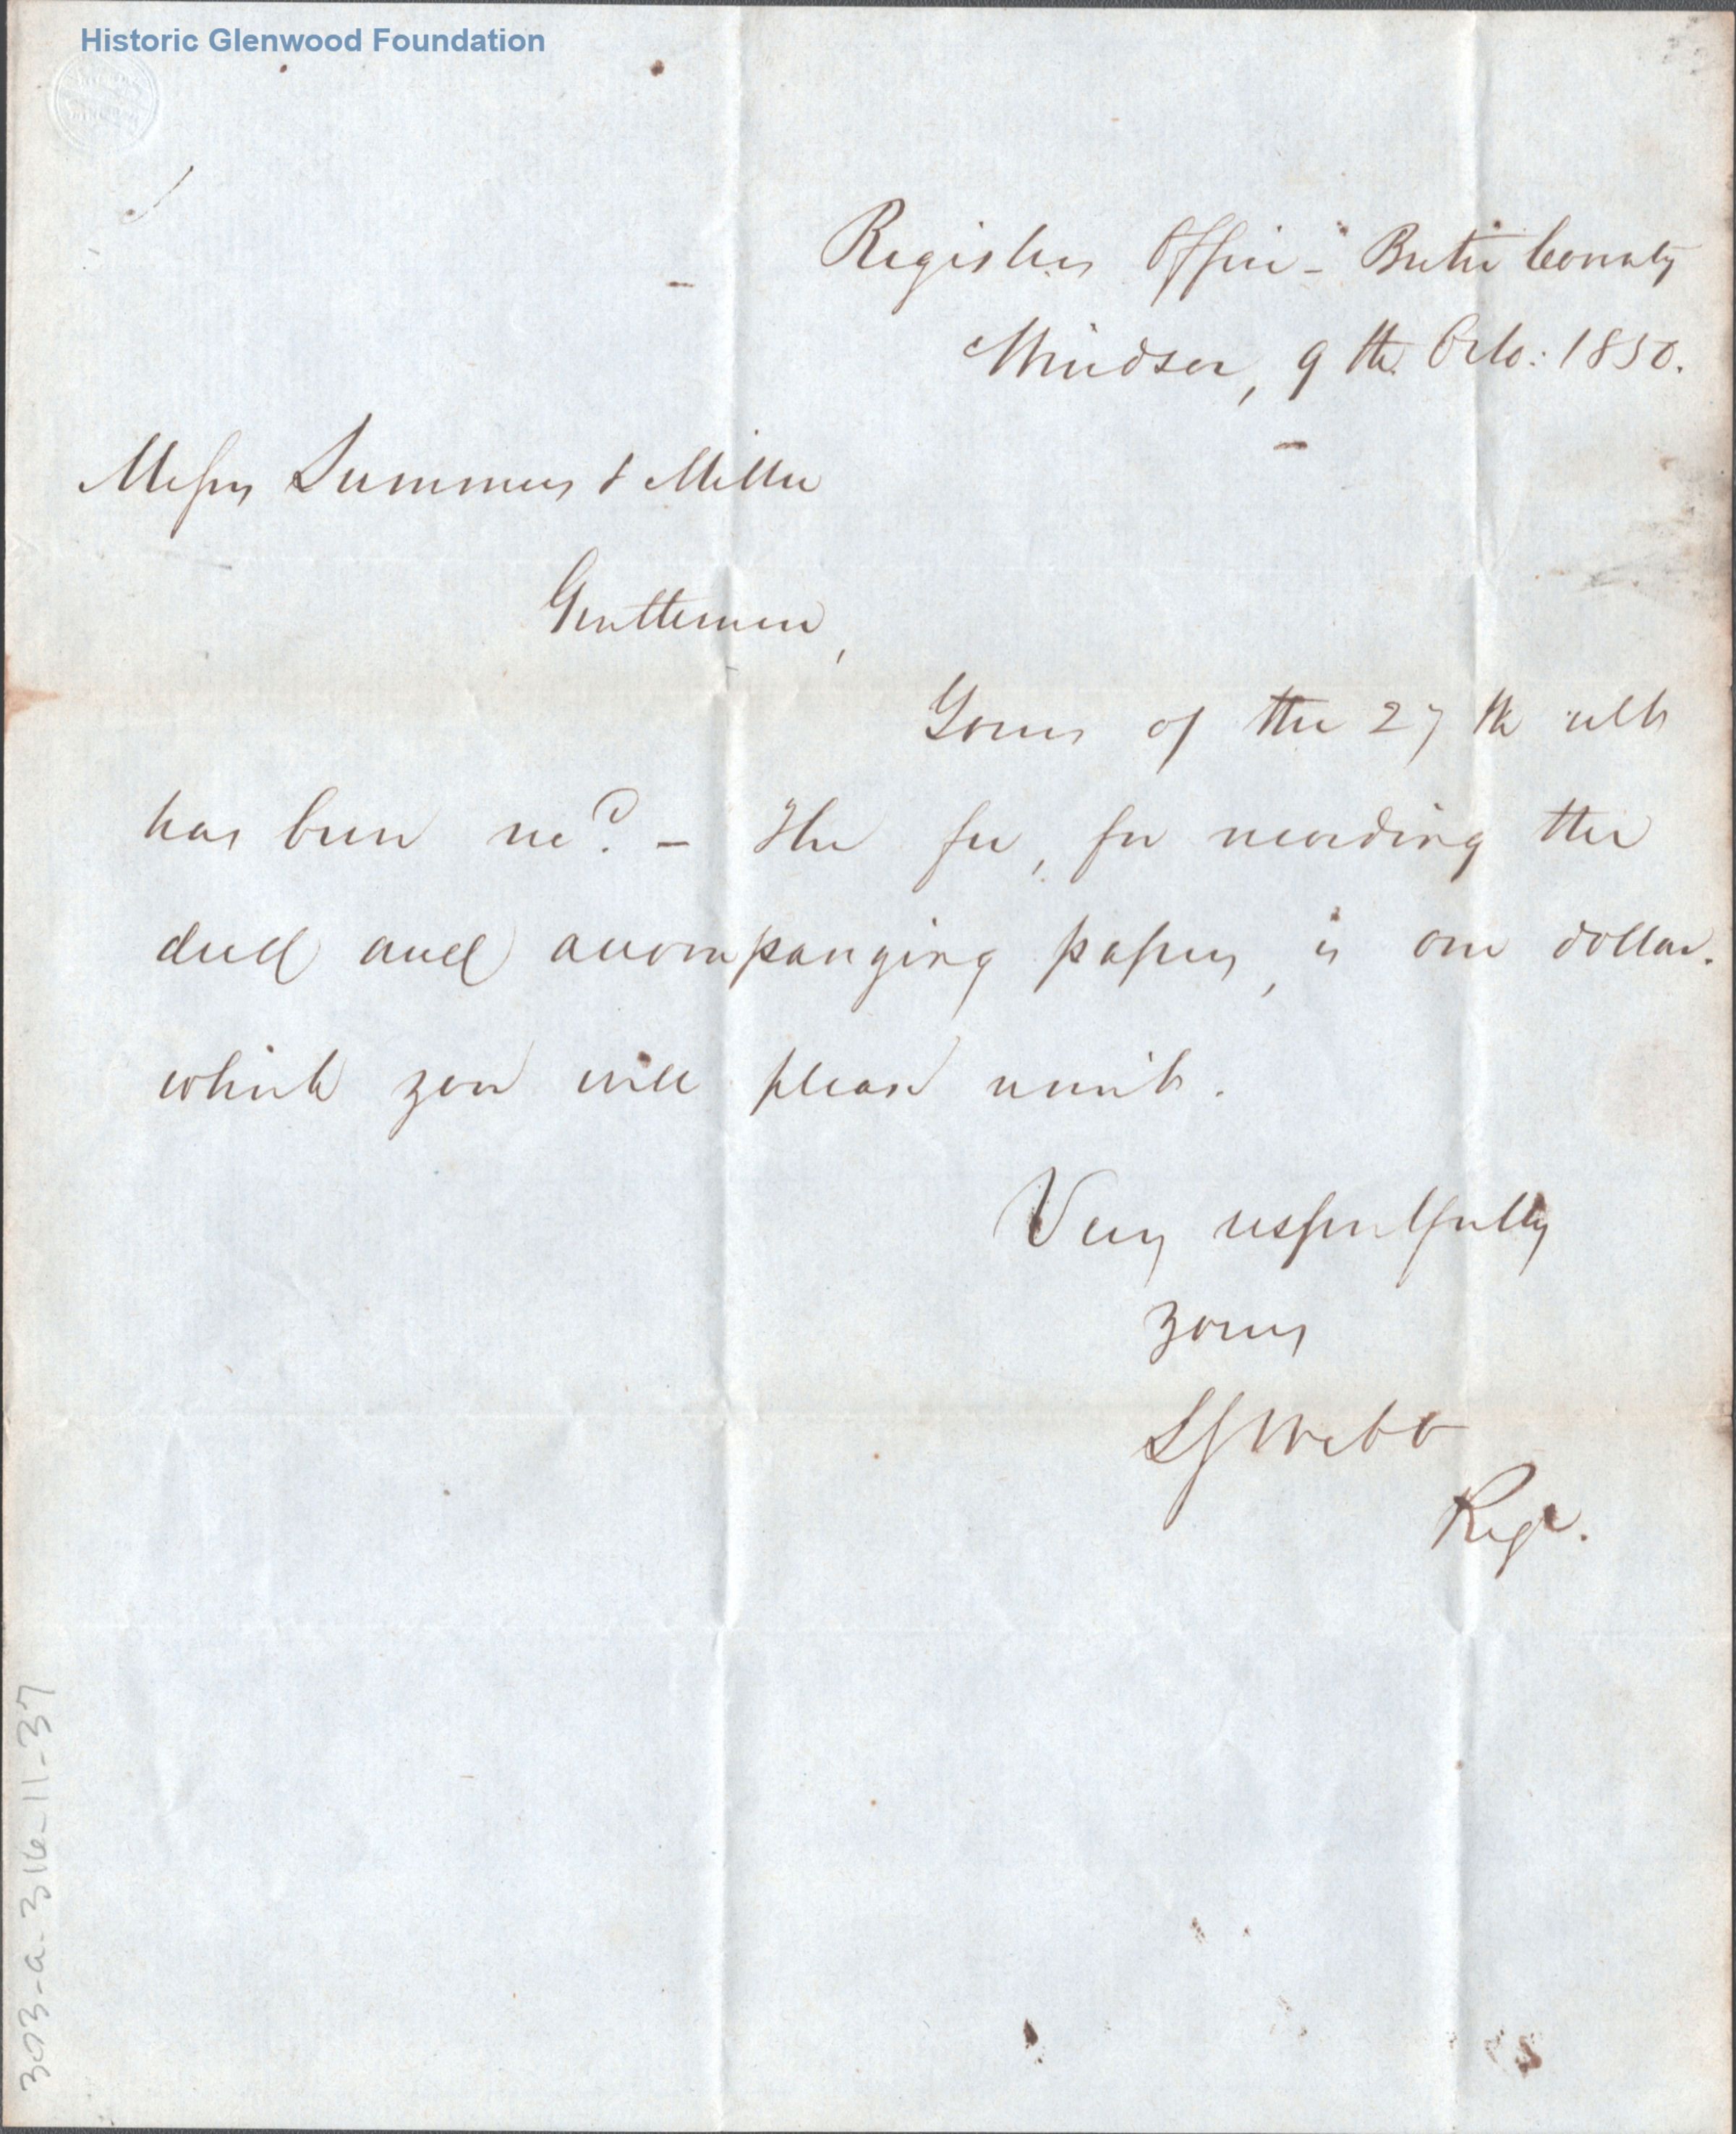 Historic Glenwood Foundation
Registers Office - Bertie County
Windsor, 9th Octo: 1850.
Messrs Summers & Miller
Gentlemen,
Yours of the 27th ult
has been recd. - The fee, for recording the
deed and accompanying papers, is one dollar.
which you will please remit.
Very respectfully
yours
Webb
Regr.
303-a-316-11-37